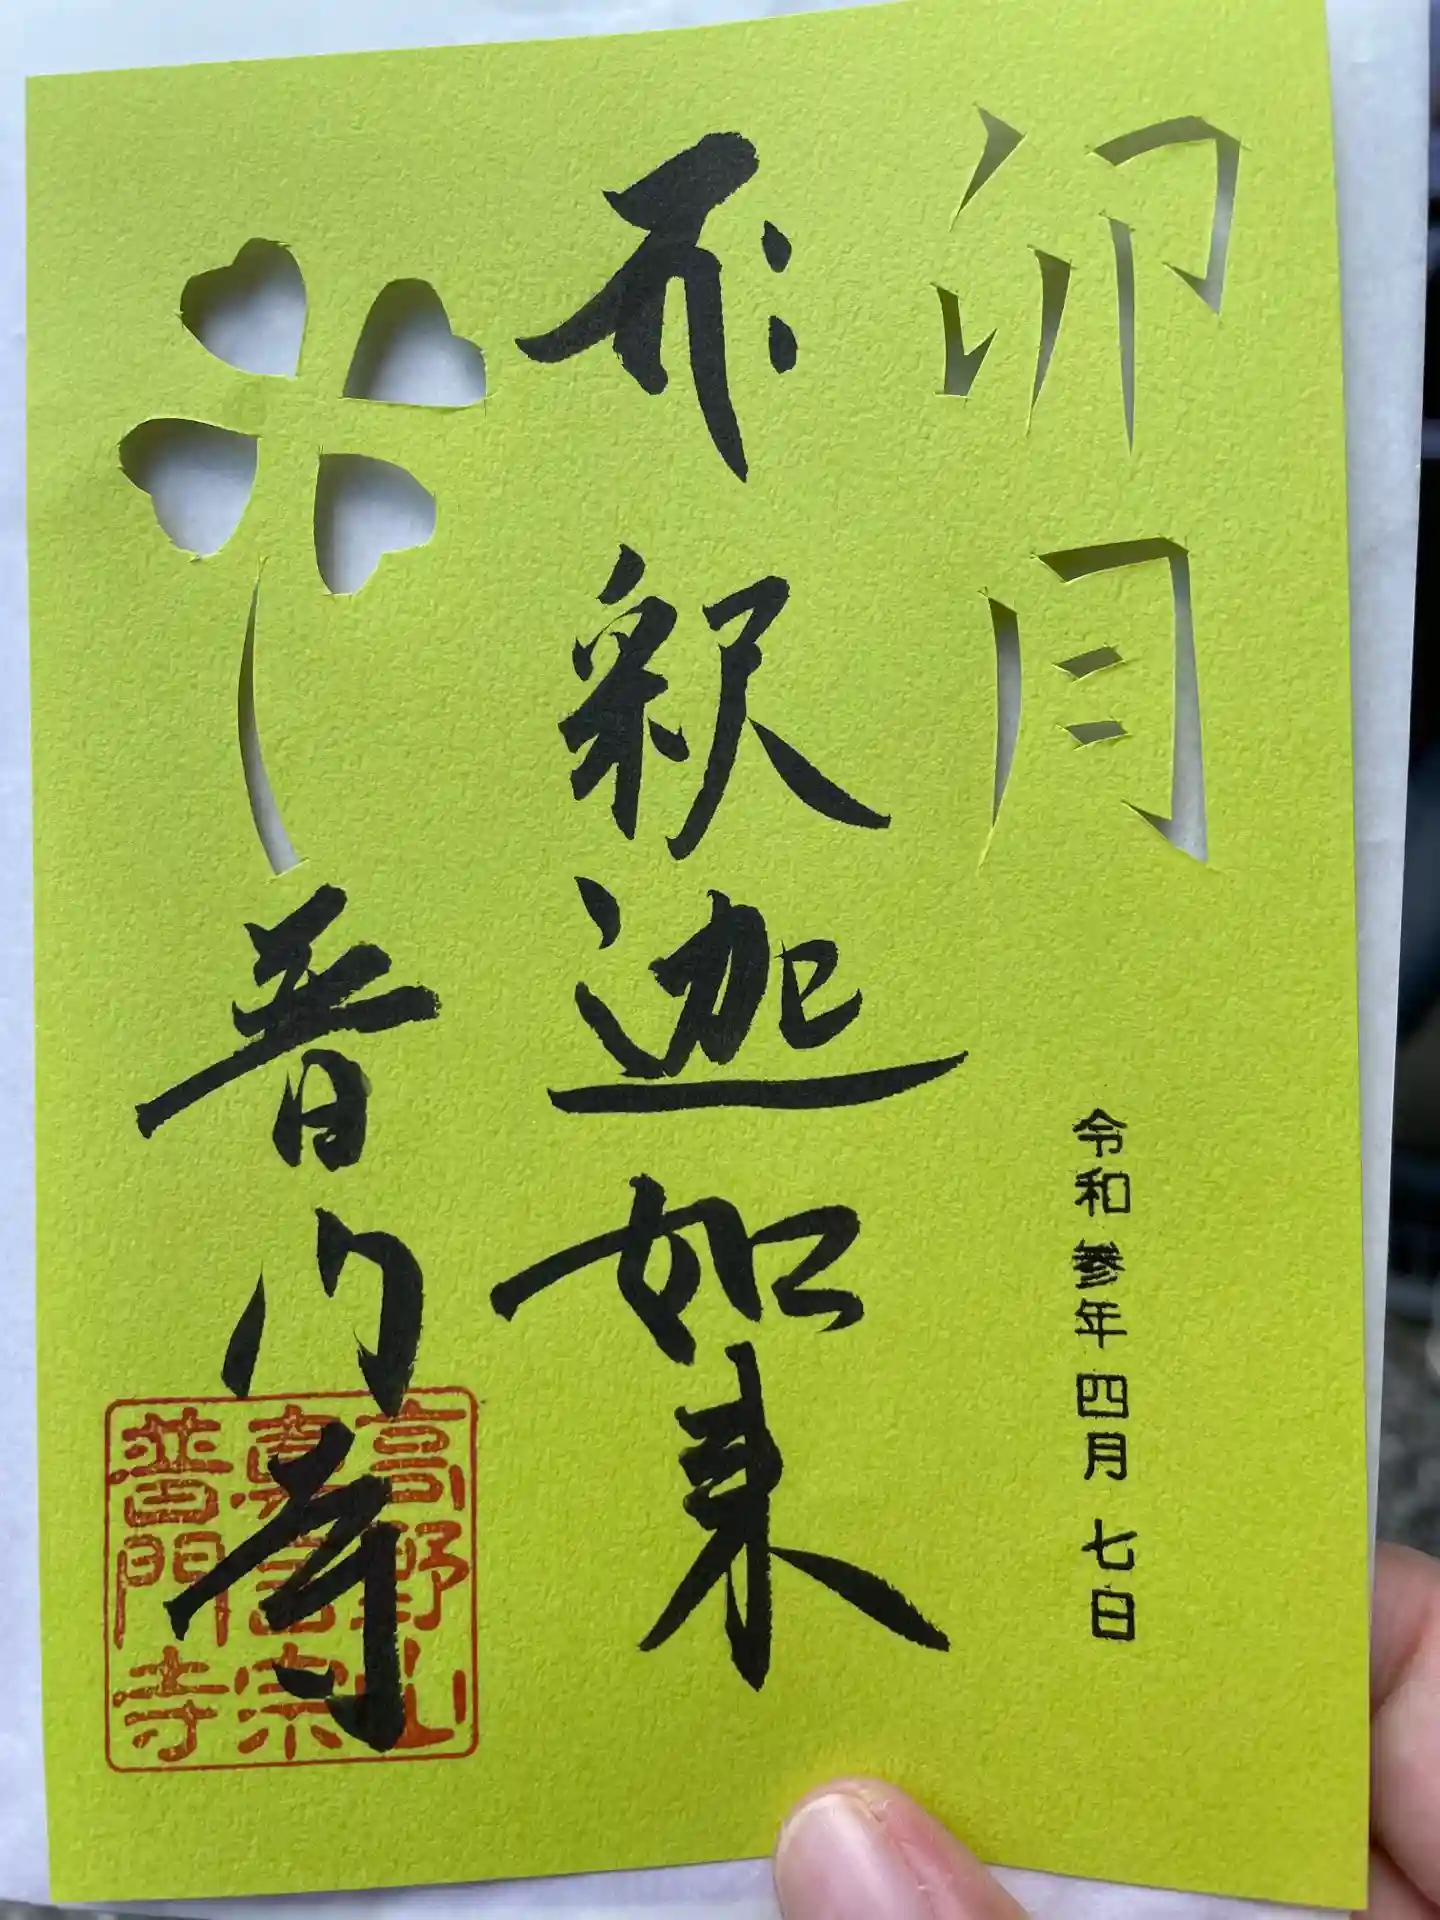 卯月
令和参年四月七日
釈迦如来
普門寺
高野山
真言宗
普門寺